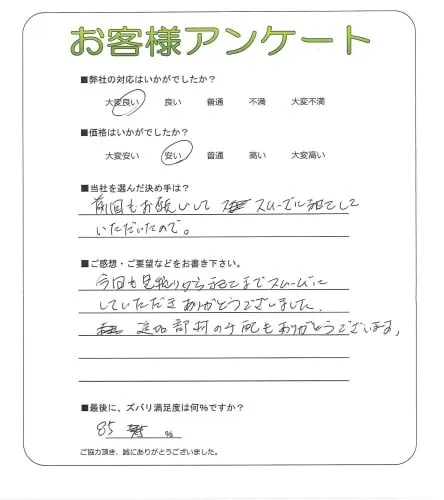 お客様アンケート
■弊社の対応はいかがでしたか?
大変良い 良い 普通 不満 大変不満
■価格はいかがでしたか?
大変安い 安い 普通 高い 大変高い
■当社を選んだ決め手は?
前回もお願いして スムーズに施工して
いただいたので。
■ご感想・ご要望などをお書き下さい。
今回も見積りから施工までスムーズに
していただきありがとうございました.
追加部材の手配もありがとうございます,
■最後に、ズバリ満足度は何%ですか?
85 %
ご協力頂き、誠にありがとうございました。